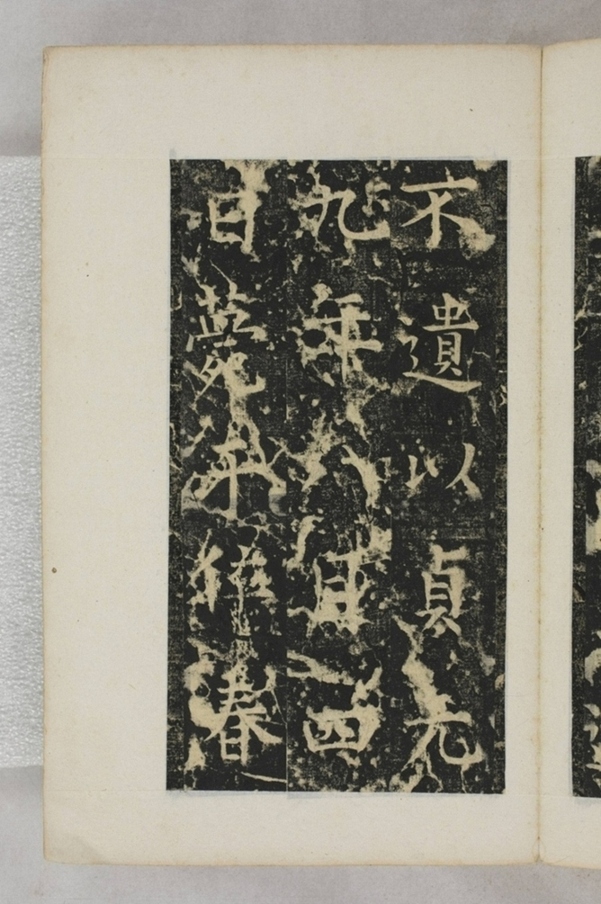 不遺以貞元
九年八月四
日薨于位春